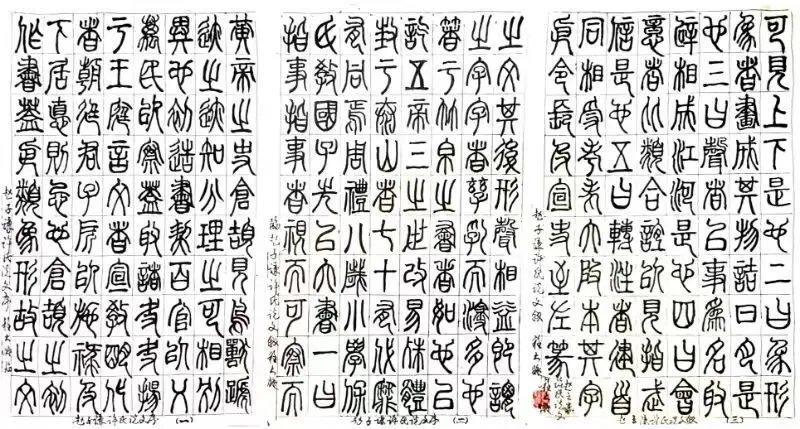 黃帝之史倉頡見鳥獸蹏
迒之迹知分理之可相別
異也初造書契百官以乂
萬民以察蓋取諸夬夬揚
于王庭言文者宣教明化
者朝廷君子所以施祿及
下居德則忌也倉頡之初
作書蓋依類象形故之文
趙子謙許氏說文序
趙子謙許氏說文序(一)
之文其後形聲相益即謂
之字字者孳乳而浸多也
著于竹帛之書者如也以
訖五帝三之世改易殊體
封于泰山者七十有代靡
有同焉周禮八歲小學保
氏教國子先以六書一曰
指事指事者視而可察而
臨趙子謙許氏說文敘
趙子謙許氏說文序(二)
可見上下是也二曰象形
象者畫成其物詰日月是
也三曰聲者以事為名取
譬相成江河是也四曰會
意者比類合誼以見指武
信是也五曰轉注者建
同相受考老六叚本其字
令長及宣史左篆
趙子謙許氏說文敘
趙子謙許氏說文敘(三)